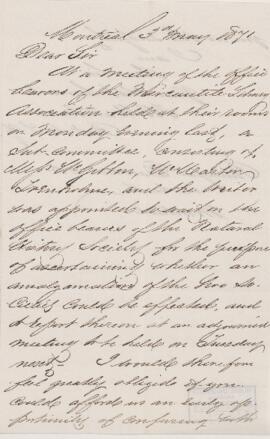 Montreal 3rd May 1871
Dear Sir
At a meeting of the office
bearers of the Mercantile Library
Association held at their rooms
on Monday evening last, a
Sub-Committee, consisting of
Messrs
and the writer
was appointed to wait on the
office bearers of the Natural
History Society for the purpose
of ascertaining whether an
amalgamation of the two So-
cieties could be effected, and
to report thereon at an adjourned
meeting to be held on Tuesday
next - I would therefore
feel greatly obliged if you
could afford us an early op
portunity of conferring with